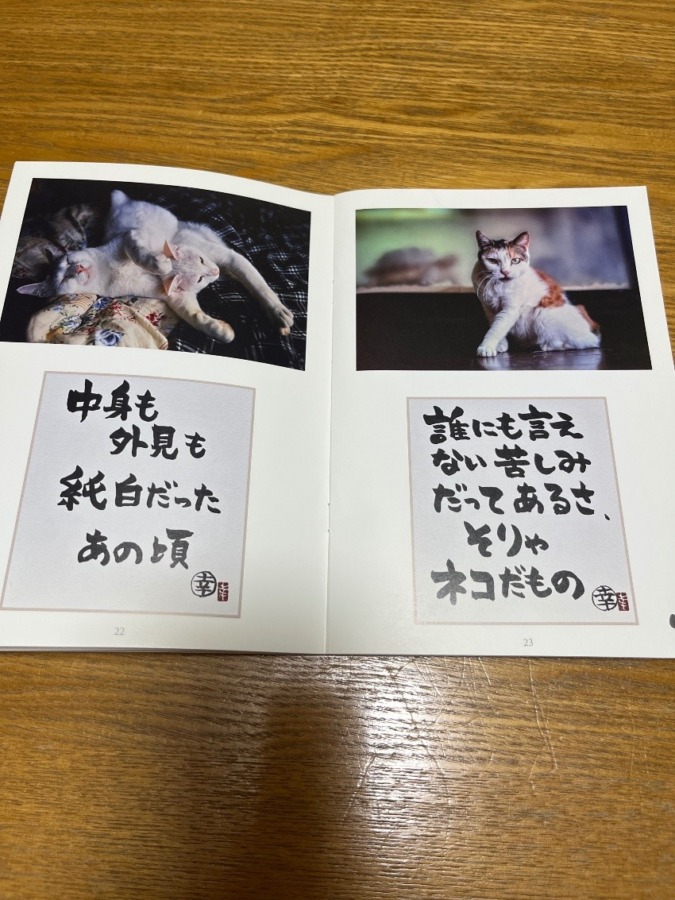 中身も
外見も
純白だった
あの頃
幸
22
誰にも言え
ない苦しみ
だってあるさ、
そりゃ
ネコだもの
幸
23